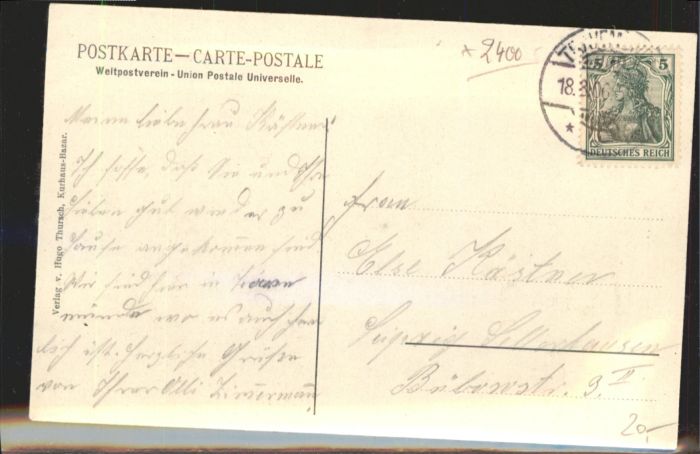 POSTKARTE — CARTE-POSTALE
Weltpostverein - Union Postale Universelle.
* 2400
18.8.06
5 5
DEUTSCHES REICH
Verlag v. Hugo Thursch, Kurhaus-Bazar.
Meine liebe Frau Kästner!
Ich hoffe, daß Sie und Ihr
lieben gut wieder zu
Hause angekommen sind.
Wir sind hier in
münde wo es auch herr
lich ist. Herzliche Grüße
von Ihrer Olli Zimmermann
Frau
Else Kästner
Leipzig Sellerhausen
Bülowstr. 9 II
20,-